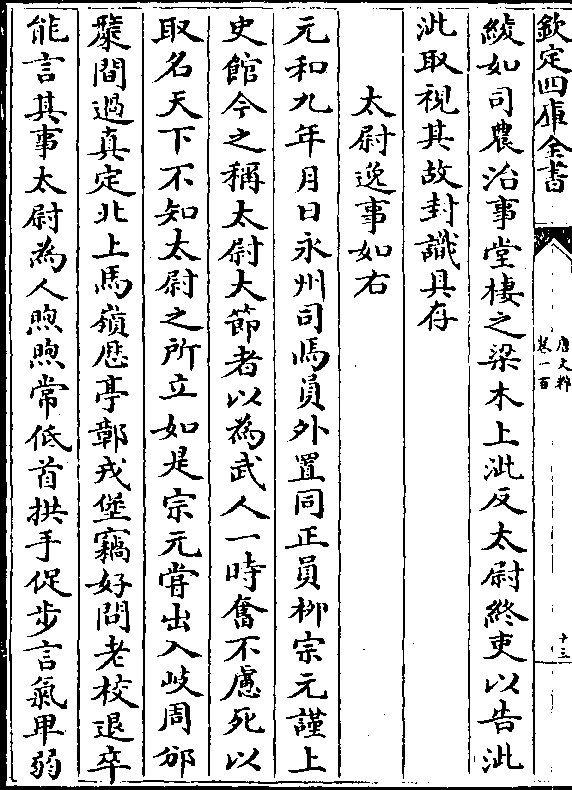 欽定四庫全書
唐文粹
卷一百
十三
綾如司農治事堂棲之梁木上泚反太尉終吏以告泚
泚取視其故封識具存
太尉逸事如右
元和九年月日永州司馬員外置同正員柳宗元謹上
史館今之稱太尉大節者以為武人一時奮不慮死以
取名天下不知太尉之所立如是宗元嘗出入岐周邠
斄間過真定北上馬嶺歷亭鄣戎堡竊好問老校退卒
能言其事太尉為人煦煦常低首拱手促步言氣卑弱